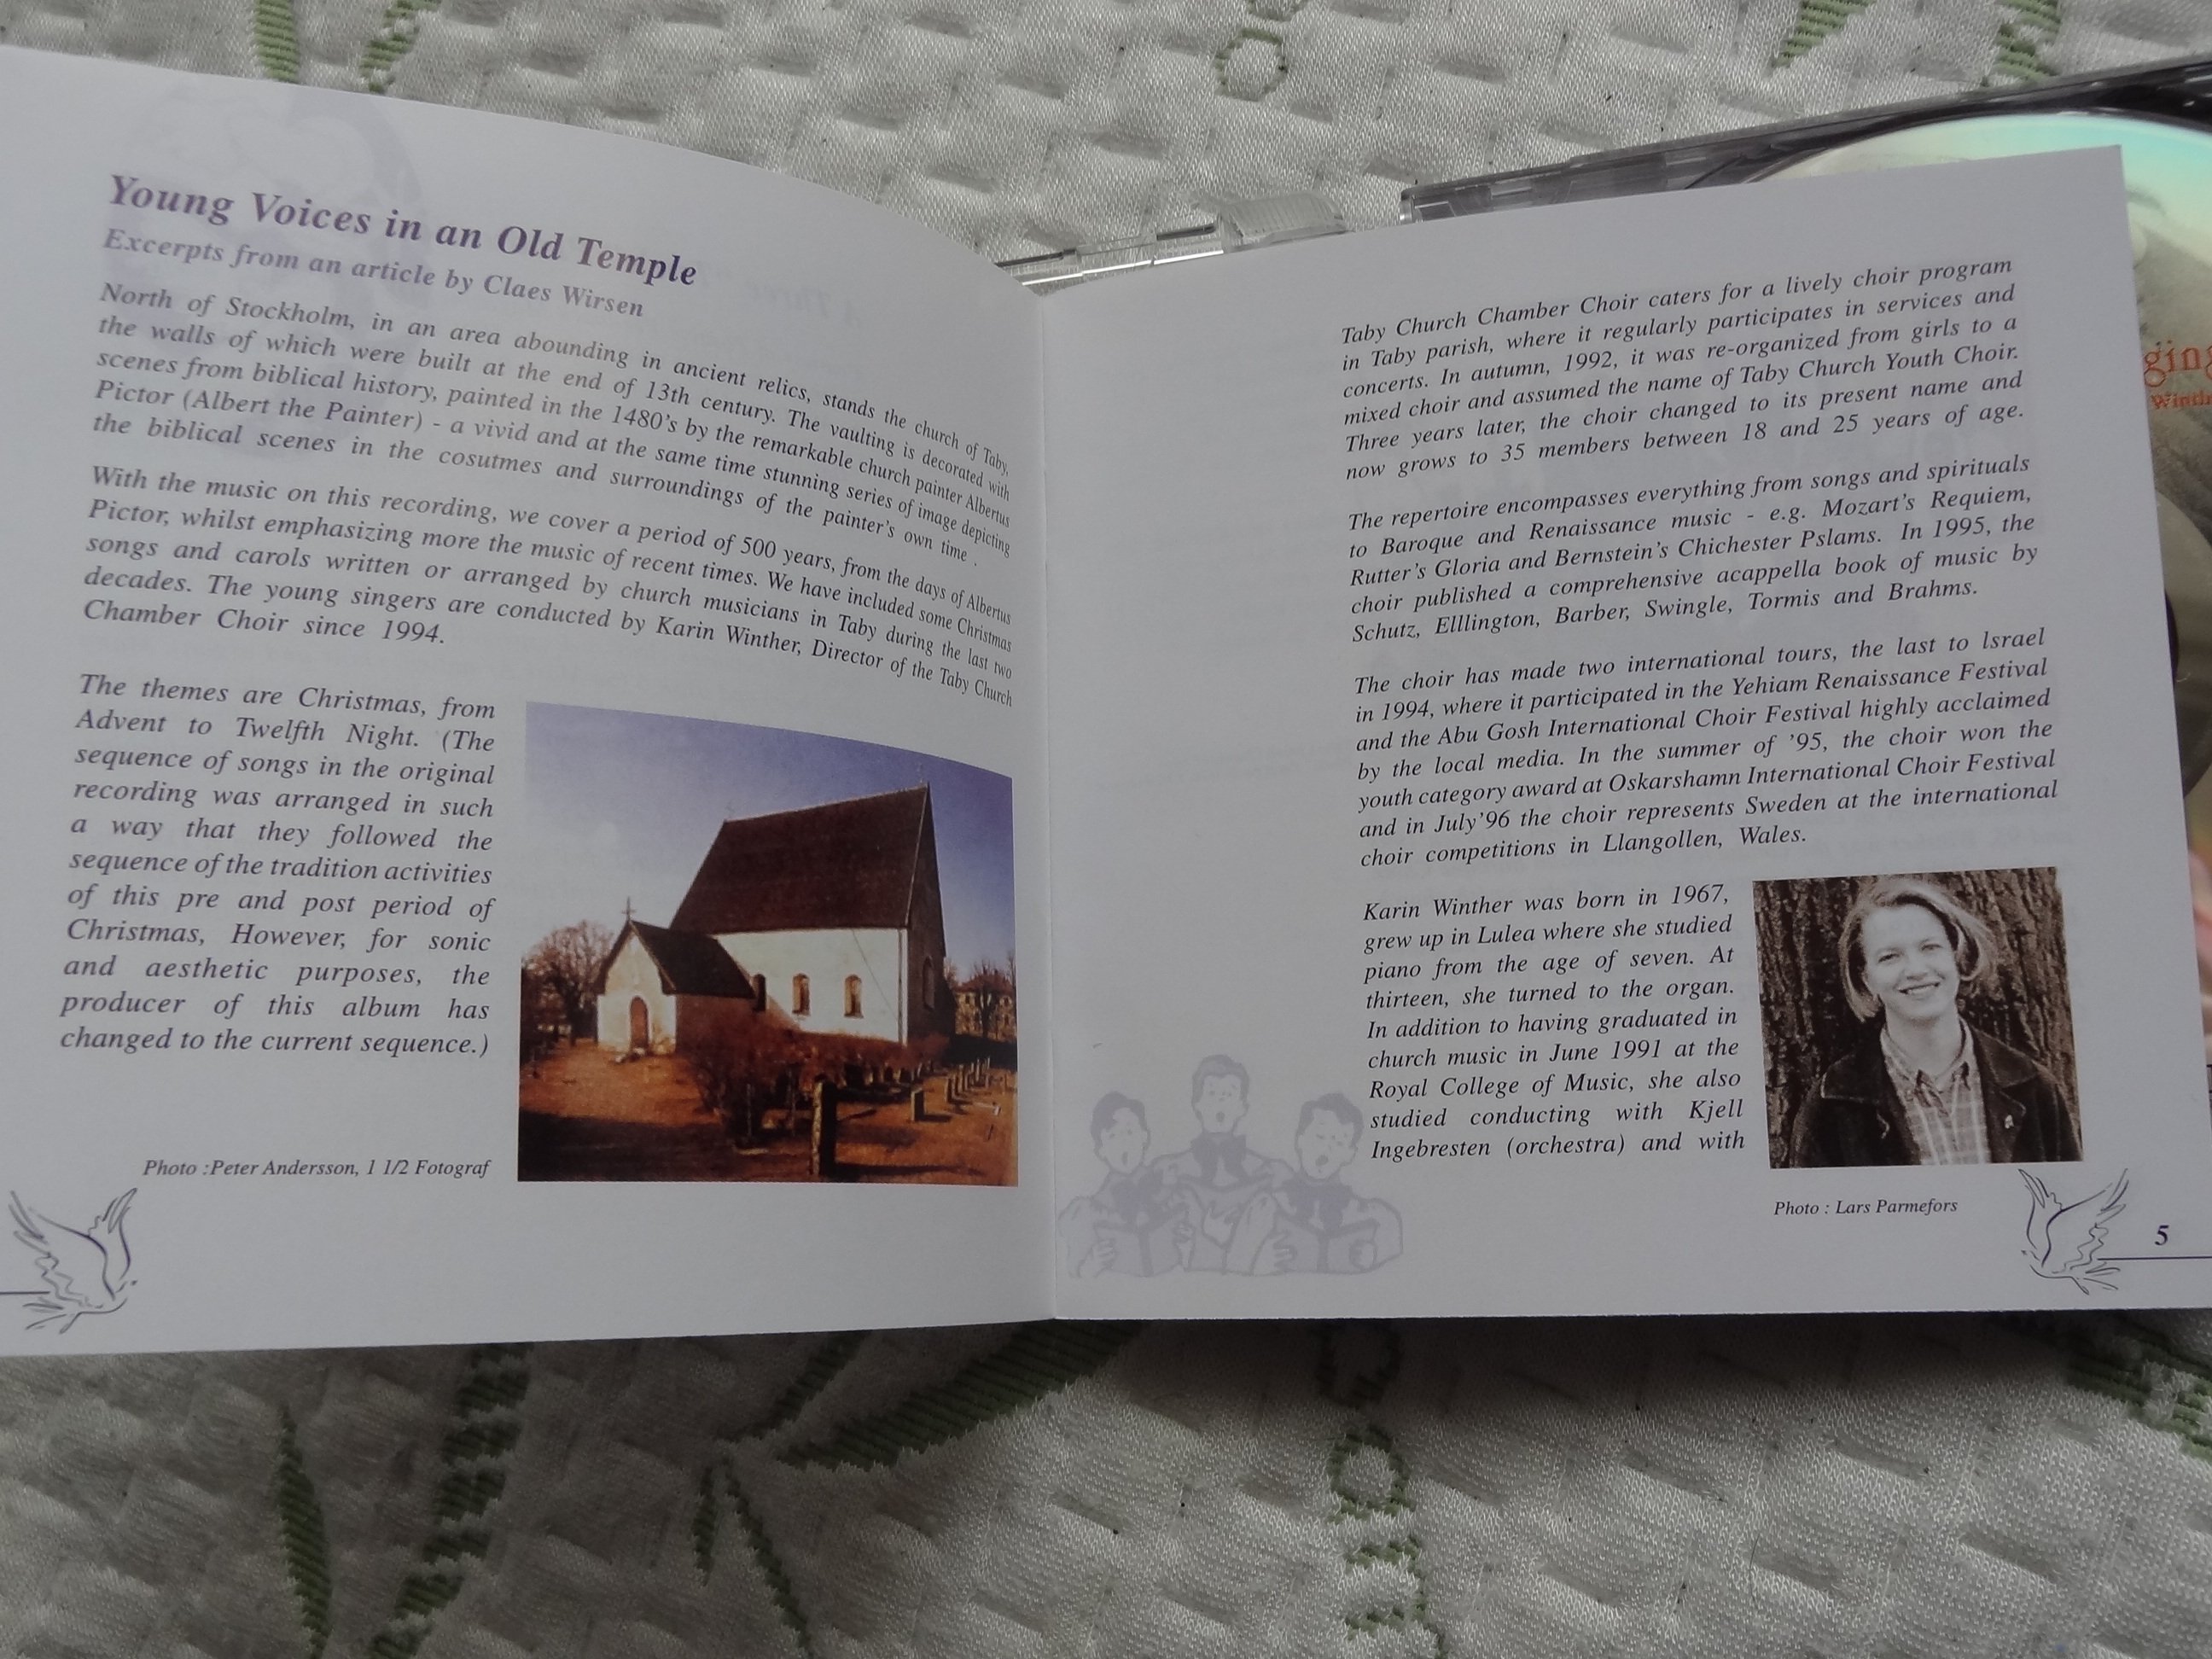 Young Voices in an Old Temple
Excerpts from an article by Claes Wirsen
North of Stockholm, in an area abounding in ancient relics, stands the church of Taby,
the walls of which were built at the end of 13th century. The vaulting is decorated with
scenes from biblical history, painted in the 1480's by the remarkable church painter Albertus
Pictor (Albert the Painter) - a vivid and at the same time stunning series of image depicting
the biblical scenes in the cosutmes and surroundings of the painter's own time .
With the music on this recording, we cover a period of 500 years, from the days of Albertus
Pictor, whilst emphasizing more the music of recent times. We have included some Christmas
songs and carols written or arranged by church musicians in Taby during the last two
decades. The young singers are conducted by Karin Winther, Director of the Taby Church
Chamber Choir since 1994.
The themes are Christmas, from
Advent to Twelfth Night. (The
sequence of songs in the original
recording was arranged in such
a way that they followed the
sequence of the tradition activities
of this pre and post period of
Christmas, However, for sonic
and aesthetic purposes, the
producer of this album has
changed to the current sequence.)
Photo :Peter Andersson, 1 1/2 Fotograf
Taby Church Chamber Choir caters for a lively choir program
in Taby parish, where it regularly participates in services and
concerts. In autumn, 1992, it was re-organized from girls to a
mixed choir and assumed the name of Taby Church Youth Choir.
Three years later, the choir changed to its present name and
now grows to 35 members between 18 and 25 years of age.
The repertoire encompasses everything from songs and spirituals
to Baroque and Renaissance music - e.g. Mozart's Requiem,
Rutter's Gloria and Bernstein's Chichester Pslams. In 1995, the
choir published a comprehensive acappella book of music by
Schutz, Elllington, Barber, Swingle, Tormis and Brahms.
The choir has made two international tours, the last to lsrael
in 1994, where it participated in the Yehiam Renaissance Festival
and the Abu Gosh International Choir Festival highly acclaimed
by the local media. In the summer of '95, the choir won the
youth category award at Oskarshamn International Choir Festival
and in July'96 the choir represents Sweden at the international
choir competitions in Llangollen, Wales.
Karin Winther was born in 1967,
grew up in Lulea where she studied
piano from the age of seven. At
thirteen, she turned to the organ.
In addition to having graduated in
church music in June 1991 at the
Royal College of Music, she also
studied conducting with Kjell
Ingebresten (orchestra) and with
Photo : Lars Parmefors
5
ging